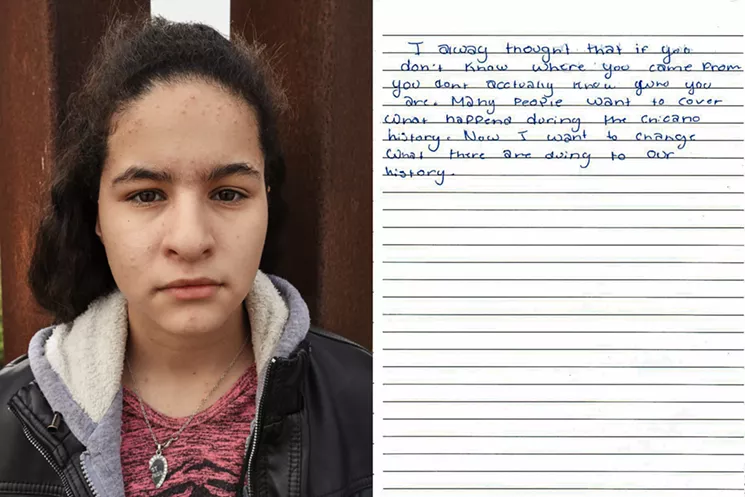 I alway thought that if you
don't know where you came from
you dont acctually know who you
are. Many people want to cover
what happend during the chicano
history. Now I want to change
what there are doing to our
history.